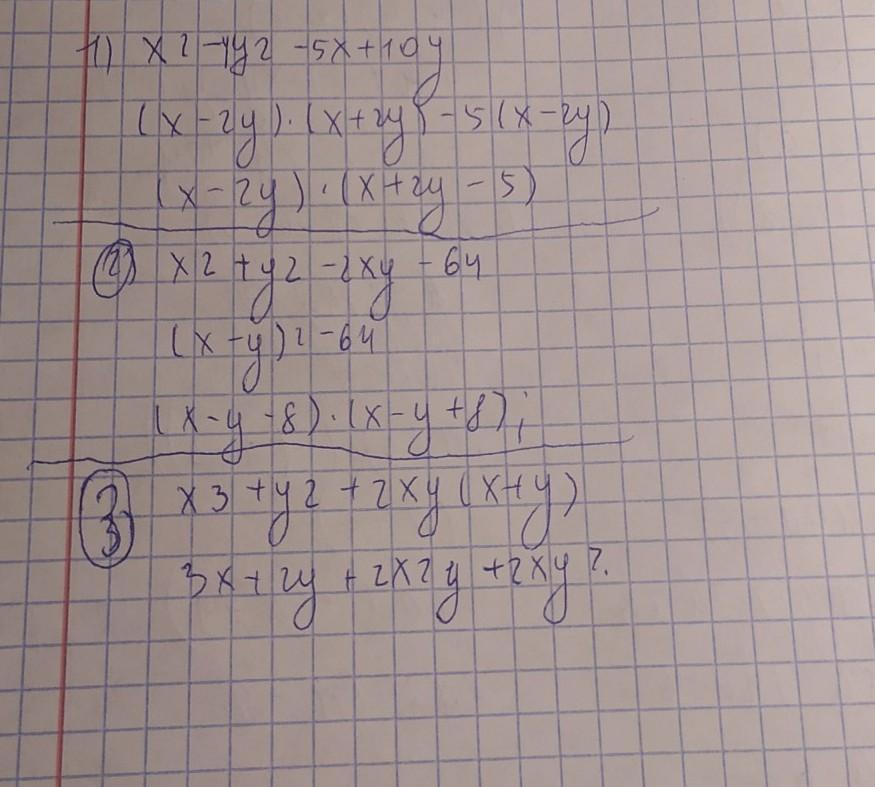 1) x2 -4y2 -5x+10y
(x-2y)·(x+2y)-5(x-2y)
(x-2y)·(x+2y-5)
2) x2+y2-2xy-64
(x-y)2-64
(x-y-8)·(x-y+8);
3) x3+y2+2xy(x+y)
3x+2y+2x2y+2xy2.